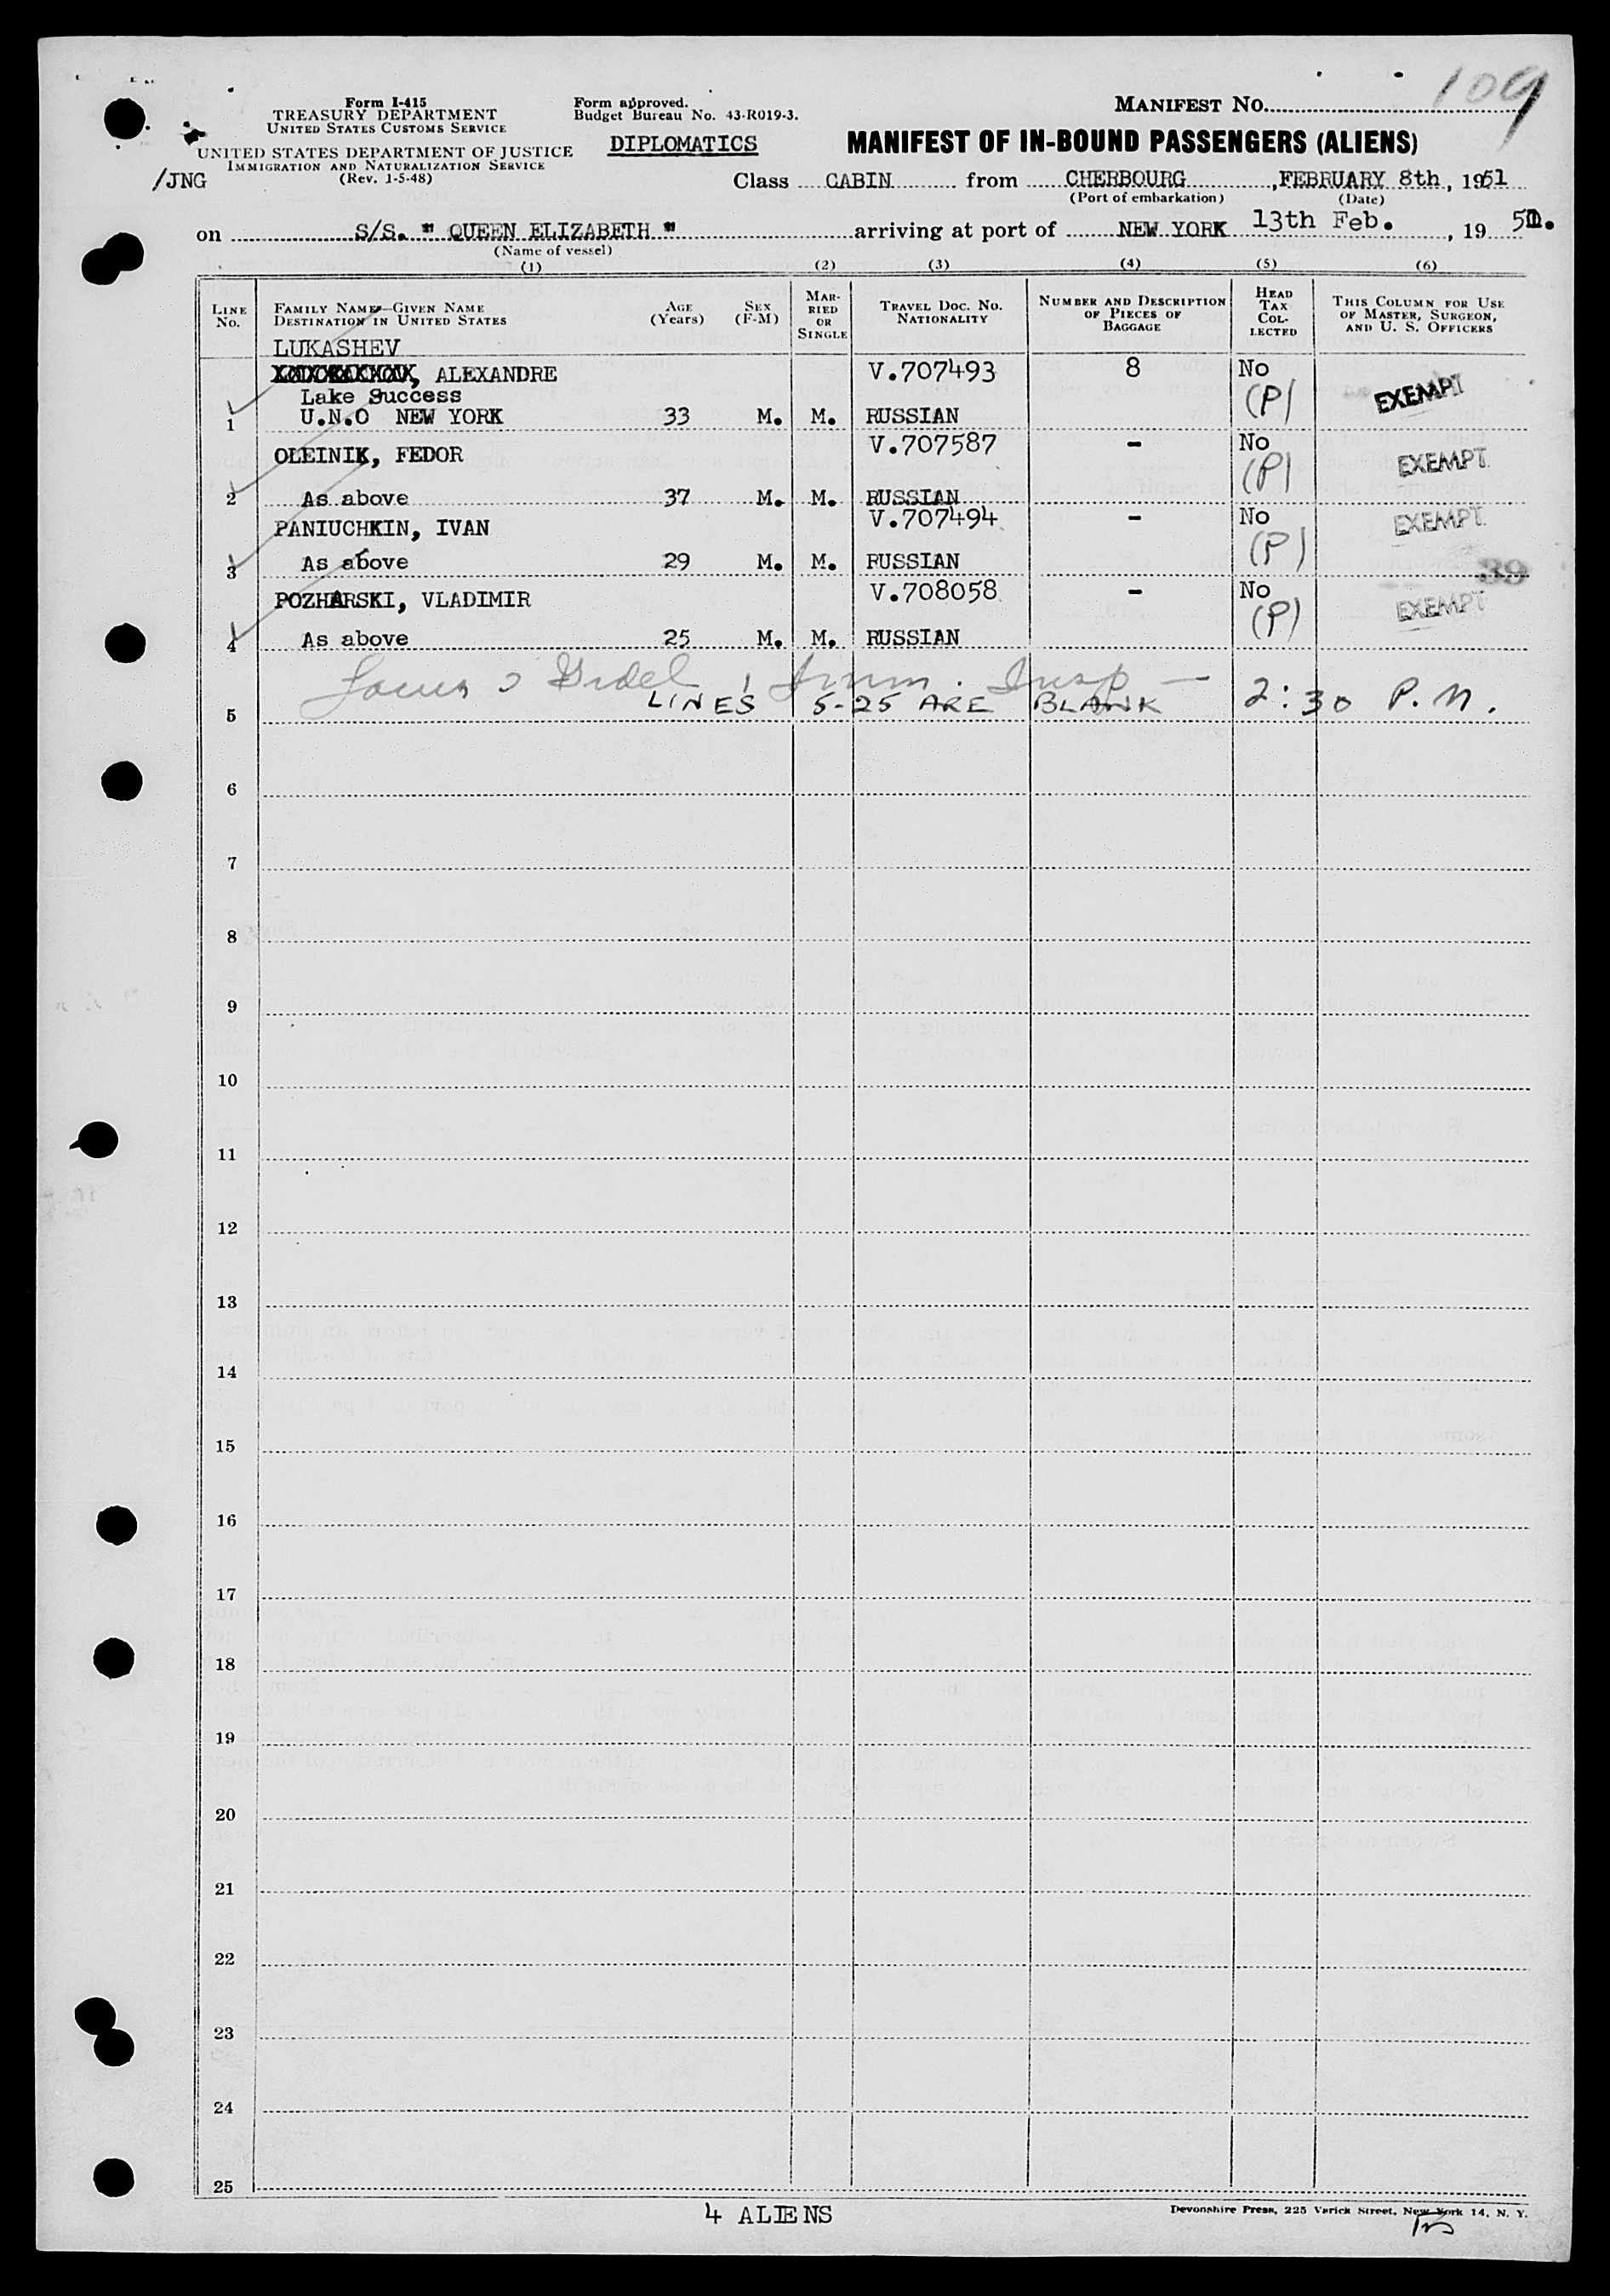 109
Form I-415
TREASURY DEPARTMENT
UNITED STATES CUSTOMS SERVICE
UNITED STATES DEPARTMENT OF JUSTICE
IMMIGRATION AND NATURALIZATION SERVICE
(Rev. 1-5-48)
/JNG
Form approved.
Budget Bureau No. 43-R019-3.
DIPLOMATICS
MANIFEST NO.
MANIFEST OF IN-BOUND PASSENGERS (ALIENS)
Class CABIN from CHERBOURG, FEBRUARY 8th, 1951
(Port of embarkation) (Date)
on S/S. " QUEEN ELIZABETH " arriving at port of NEW YORK 13th Feb., 19 51.
(Name of vessel)
(1) (2) (3) (4) (5) (6)
LINE NO. FAMILY NAME—GIVEN NAME DESTINATION IN UNITED STATES AGE (Years) SEX (F-M) MARRIED OR SINGLE TRAVEL DOC. NO. NATIONALITY NUMBER AND DESCRIPTION OF PIECES OF BAGGAGE HEAD TAX COLLECTED THIS COLUMN FOR USE OF MASTER, SURGEON, AND U. S. OFFICERS
LUKASHEV
, ALEXANDRE V.707493 8 No
Lake Success (P) EXEMPT
1 U.N.O NEW YORK 33 M. M. RUSSIAN
OLEINIK, FEDOR V.707587 - No
(P) EXEMPT
2 As above 37 M. M. RUSSIAN
PANIUCHKIN, IVAN V.707494 - No
(P) EXEMPT
3 As above 29 M. M. RUSSIAN
39
POZHARSKI, VLADIMIR V.708058 - No
(P) EXEMPT
4 As above 25 M. M. RUSSIAN
Imm. Insp —
5 LINES 5-25 ARE BLANK 2:30 P.M.
6
7
8
9
10
11
12
13
14
15
16
17
18
19
20
21
22
23
24
25
4 ALIENS
Devonshire Press, 225 Varick Street, New York 14, N. Y.